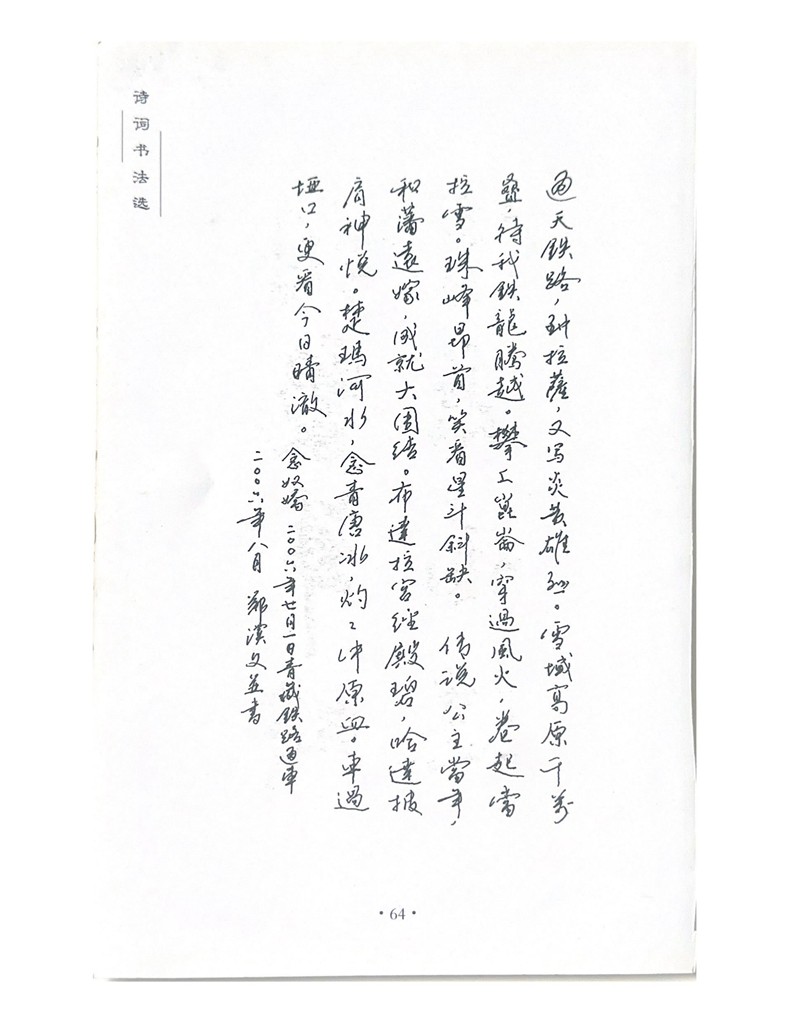 诗词书法选
通天铁路，到拉薩，又写炎黄雄烈。雪域高原千万
叠，待我铁龍騰越。攀上崑崙，穿過風火，卷起當
拉雪。珠峰昂首，笑看星斗斜缺。 传说公主當年，
和蕃遠嫁，成就大團结。布達拉宫经殿碧，哈達披
肩神悦。楚瑪河水，念青唐冰，灼灼中原血。車過
埡口，更看今日晴澈。
念奴嬌 二〇〇六年七月一日青藏铁路通車
二〇〇六年八月 鄭漢文並書
·64·